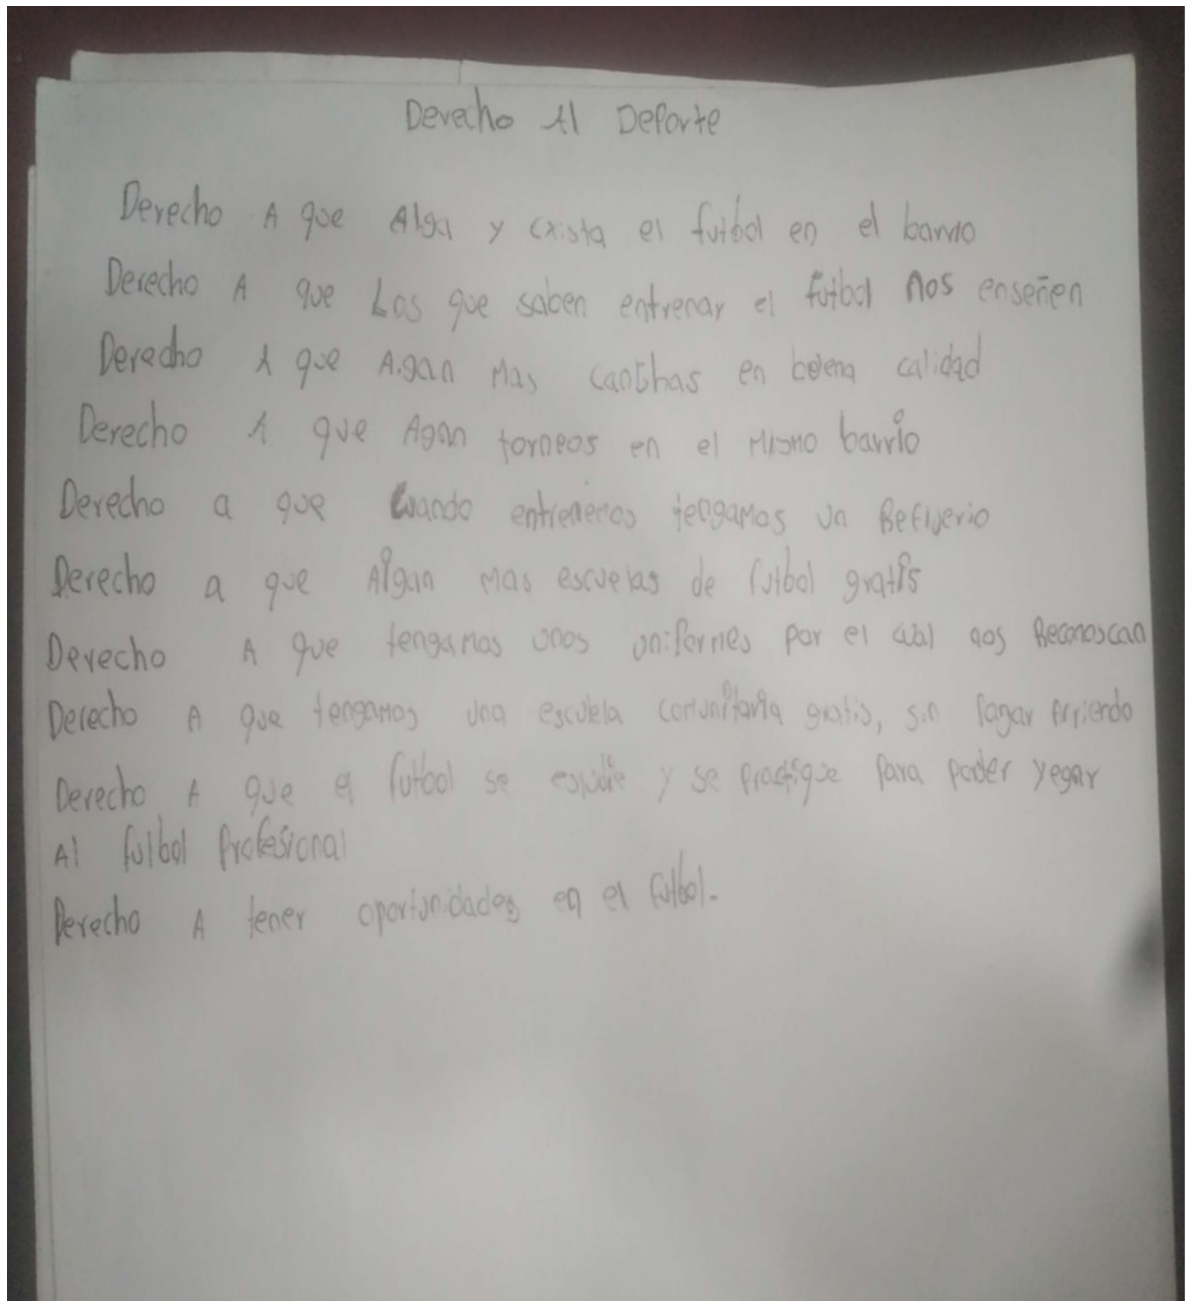 Derecho Al Deporte
Derecho A que Alga y exista el futbol en el barrio
Derecho A que Los que saben entrenar el futbol nos enseñen
Derecho A que Agan Mas canchas en buena calidad
Derecho A que Agan torneos en el Mismo barrio
Derecho a que cuando entrenemos tengamos un Refijerio
Derecho a que Aigan mas escuelas de futbol gratis
Derecho A que tengamos unos uniformes por el cual nos Reconoscan
Derecho A que tengamos una escuela comunitaria gratis, sin pagar Arriendo
Derecho A que el futbol se estudie y se practique para poder yegar
Al futbol profesional
Derecho A tener oportunidades en el futbol.